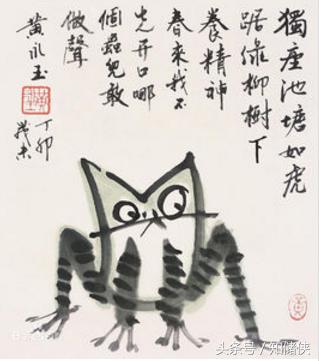 獨座池塘如虎
踞綠柳樹下
養精神
春來我不
先开口哪
個蟲兒敢
做聲
黃永玉
丁卯
头条号